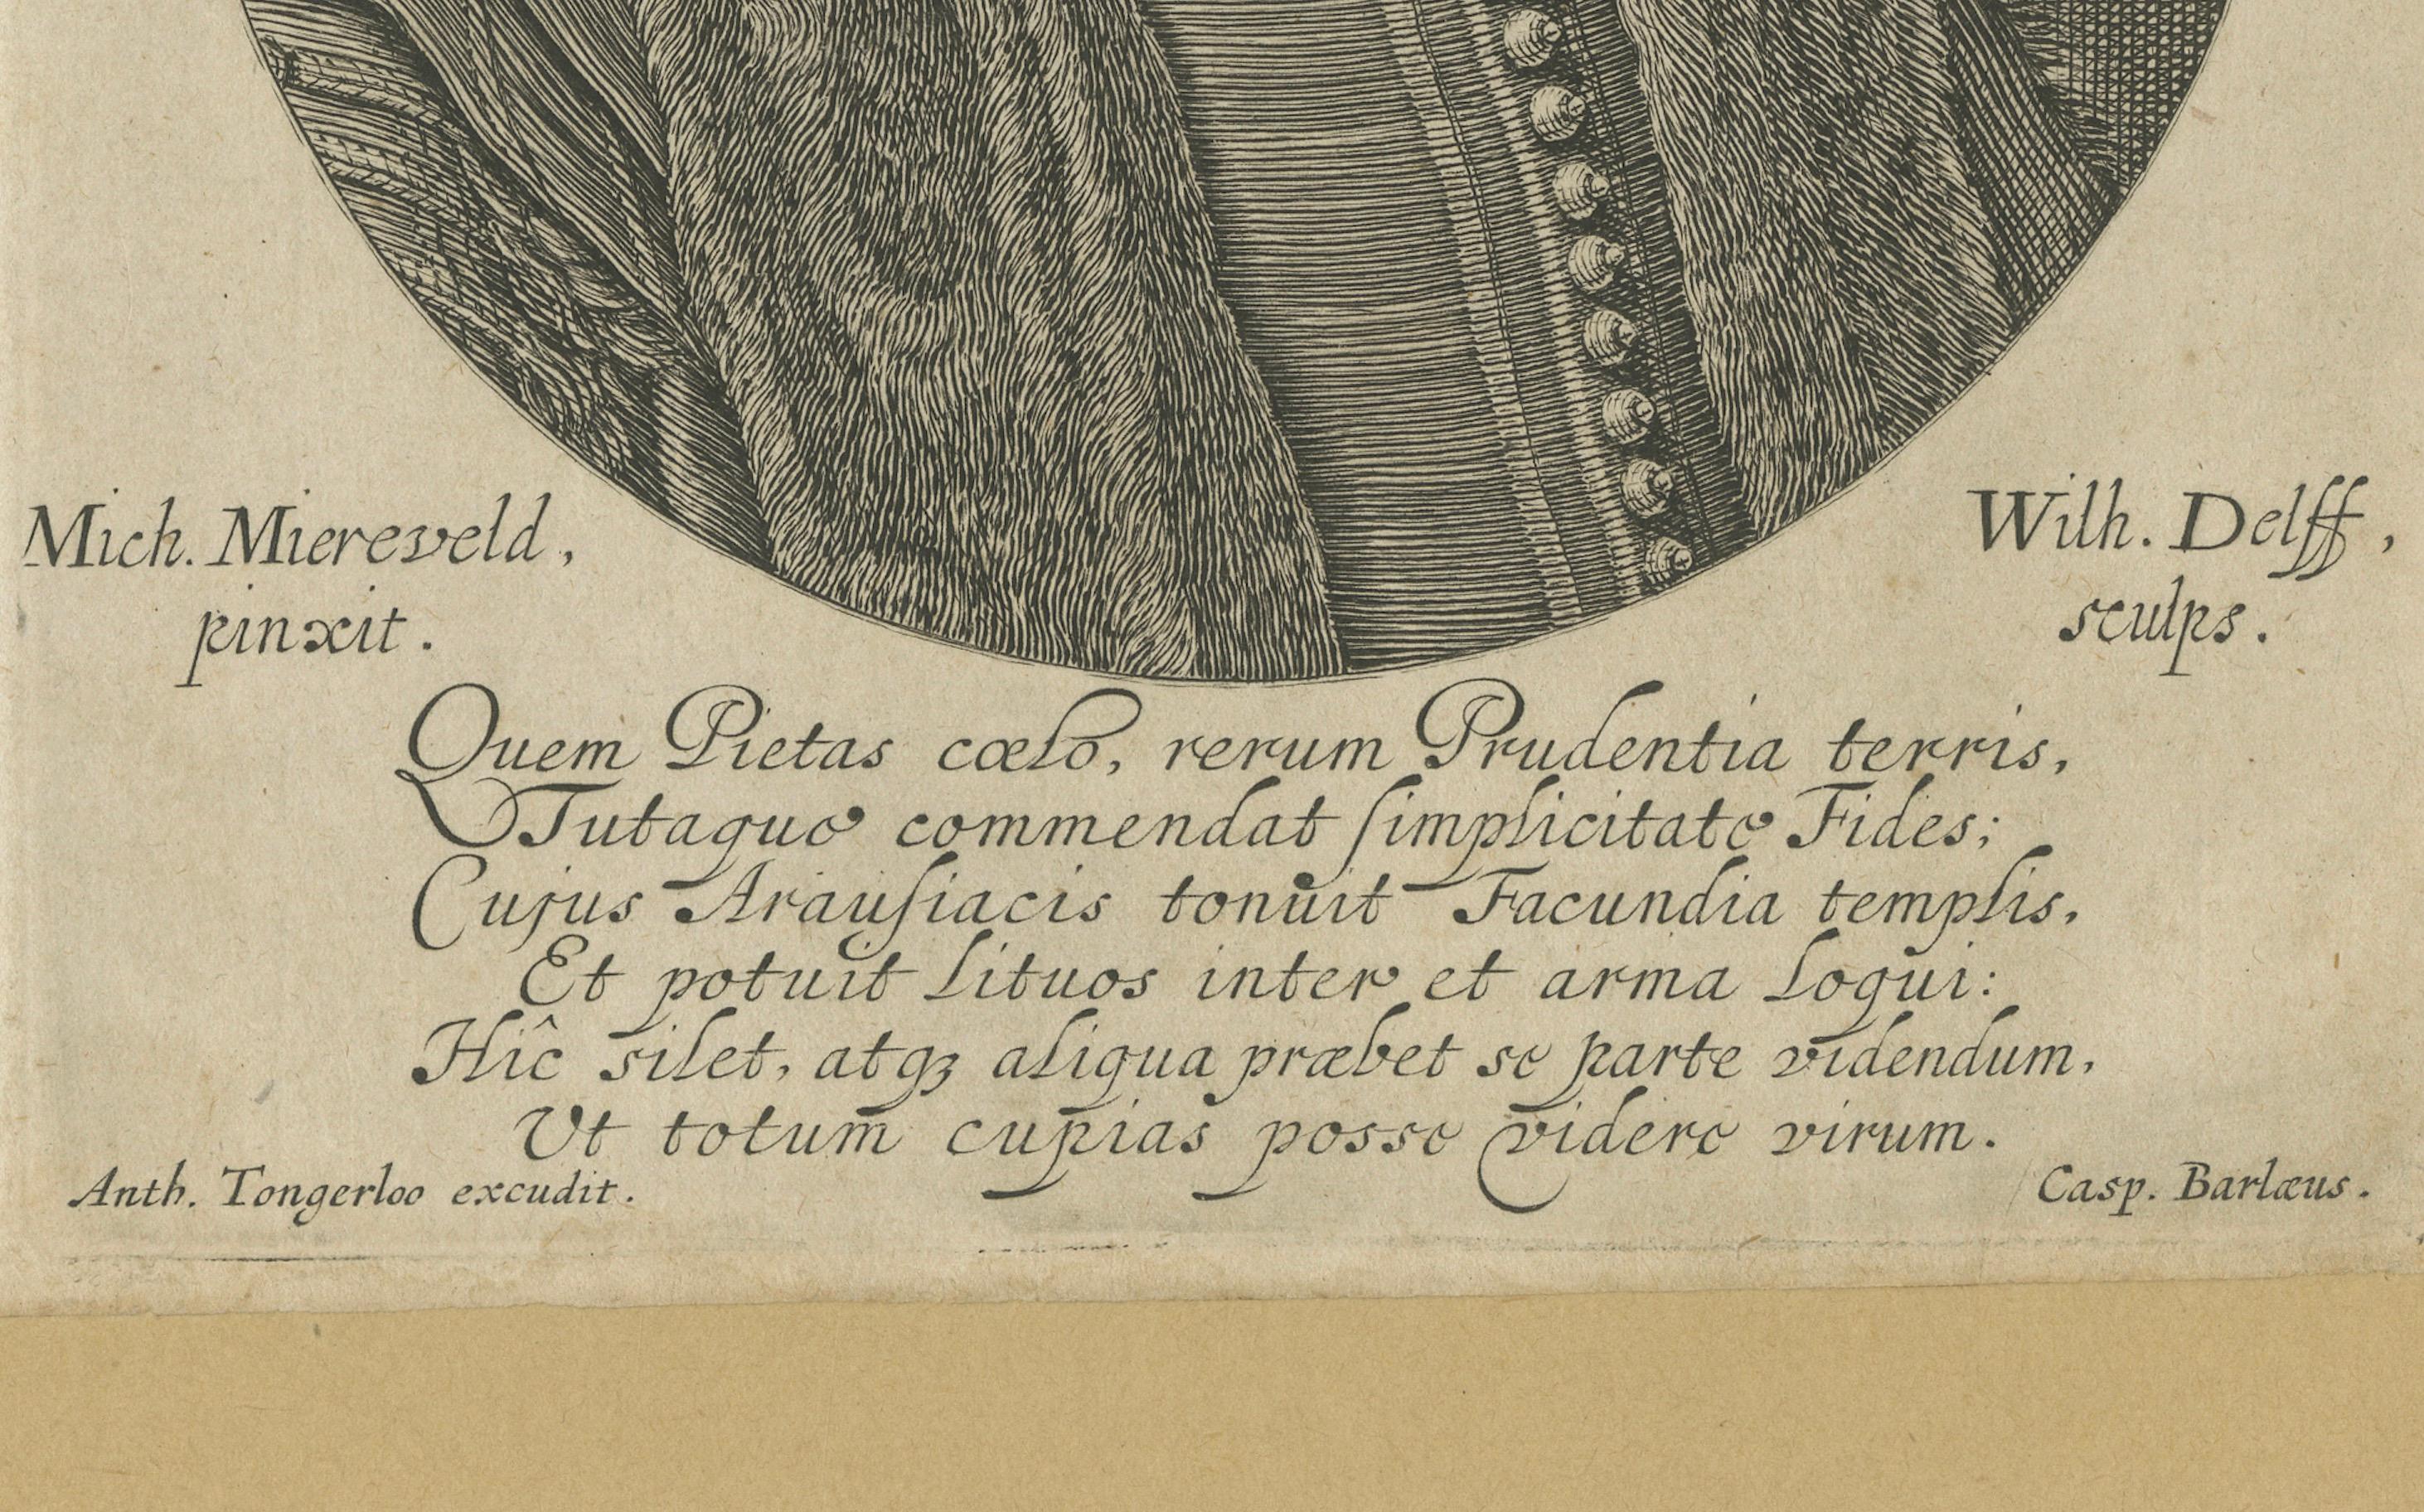 Mich. Miereveld,
pinxit.
Wilh. Delff,
sculps.
Quem Pietas cœlo, rerum Prudentia terris,
Tutaque commendat ſimplicitate Fides;
Cujus Arauſiacis tonuit Facundia templis,
Et potuit lituos inter et arma loqui:
Hîc silet, atqꝫ aliqua præbet se parte videndum,
Ut totum cupias posse videre virum.
Anth. Tongerloo excudit.
Casp. Barlæus.